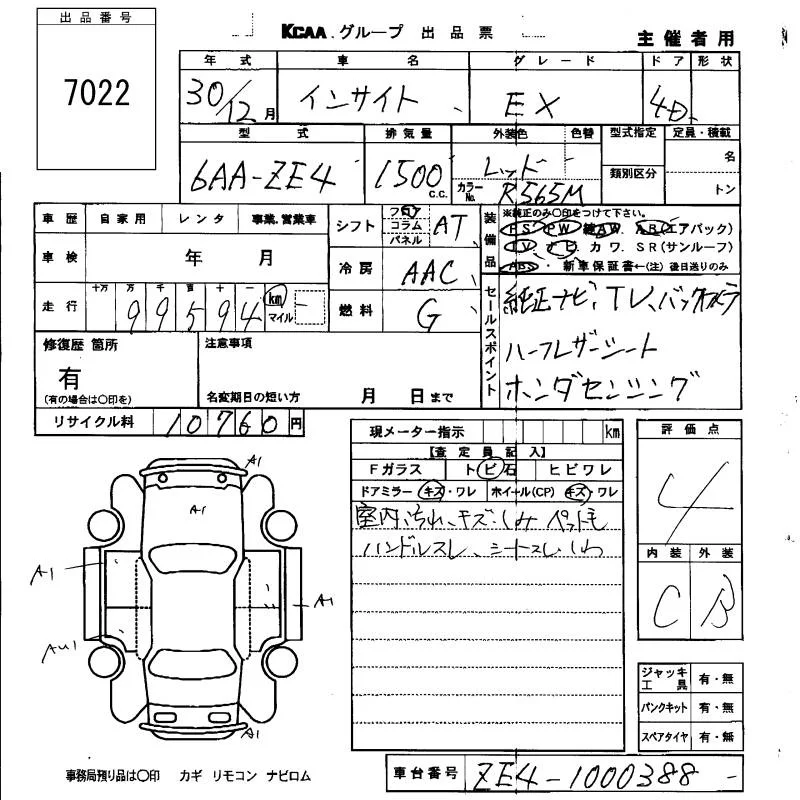 出品番号
7022
KCAA.グループ 出品票
主催者用
年式 車名 グレード ドア 形状
30/12月 インサイト EX 4D
型式 排気量 外装色 色替 型式指定 定員・積載
6AA-ZE4 1500 c.c. レッド 名
カラーNo. R565M 類別区分 トン
車歴 自家用 レンタ 事業.営業車
シフト フロア コラム パネル AT
装備品
※純正のみ〇印をつけて下さい。
PS PW AW. AB(エアバック)
TV. ナビ. カワ. SR(サンルーフ)
ABS・ 新車保証書←(注) 後日送りのみ
車検 年 月
冷房 AAC
走行 十万 万 千 百 十 一
99594 km マイル
燃料 G
セールスポイント
純正ナビ、TV、バックカメラ
ハーフレザーシート
ホンダセンシング
修復歴 箇所
有
(有の場合は〇印を)
注意事項
名変期日の短い方 月 日まで
リサイクル料 10760円
現メーター指示 km
【査定員記入】
Fガラス トビ石 ヒビワレ
ドアミラー キズ・ワレ ホイール(CP) キズ・ワレ
室内汚れ、キズ・しみ ペット毛
ハンドルスレ、シートスレ・しわ
評価点
4
内装 外装
C B
A1
A1
A1
A1
AU1
A1
ジャッキ工具 有・無
パンクキット 有・無
スペアタイヤ 有・無
事務局預り品は〇印 カギ リモコン ナビロム
車台番号 ZE4-1000388